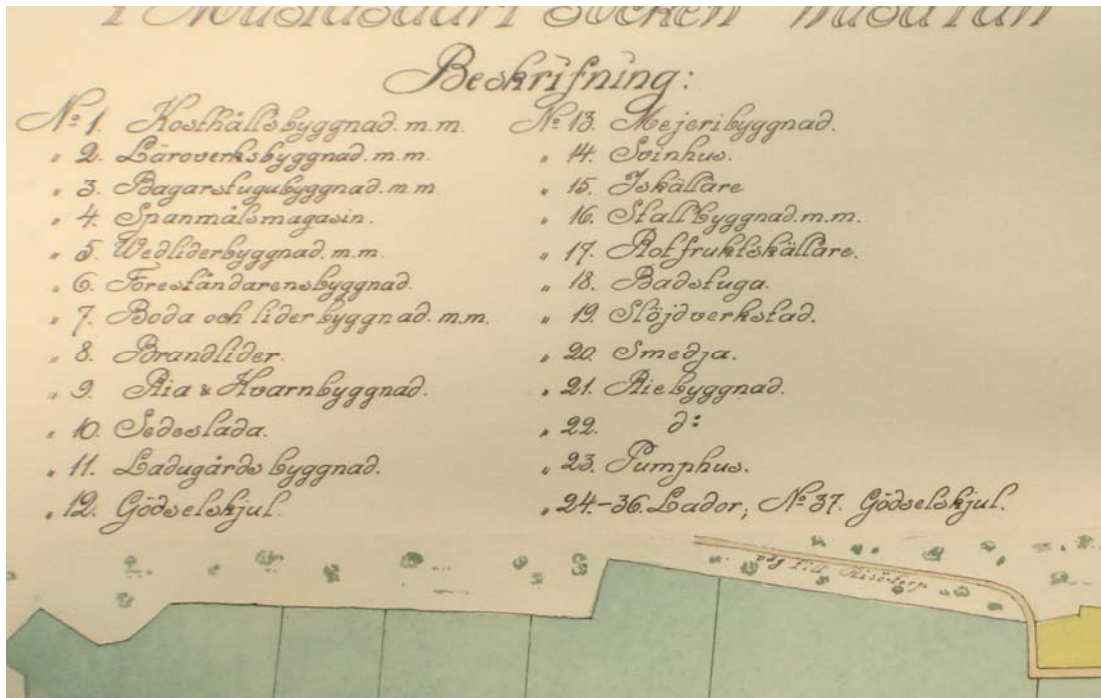 i Mustasaari socken Wasa län
Beskrifning:
No 1. Kosthållsbyggnad. m.m.
" 2. Läroverksbyggnad. m.m.
" 3. Bagarstugubyggnad. m.m
" 4. Spanmålsmagasin.
" 5. Wedliderbyggnad. m.m.
" 6. Föreståndarensbyggnad.
" 7. Boda och lider byggnad. m.m.
" 8. Brandlider.
" 9. Ria & Kvarnbyggnad.
" 10. Sädeslada.
" 11. Ladugårdsbyggnad.
" 12. Gödselskjul.
No 13. Mejeribyggnad.
" 14. Svinhus.
" 15. Iskällare
" 16. Stallbyggnad. m.m.
" 17. Rotfruktskällare.
" 18. Badstuga.
" 19. Slöjdverkstad.
" 20. Smedja.
" 21. Riebyggnad.
" 22. d:
" 23. Pumphus.
" 24.-36. Lador; No 37. Gödselskjul.
väg till